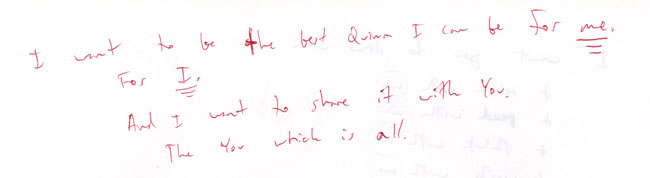 I want to be the best Quinn I can be for me.
For I.
And I want to share it with You.
The You which is all.